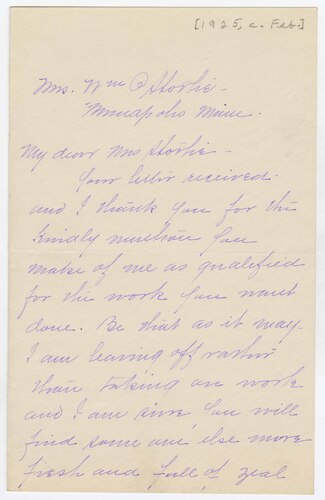 [1925, c. Feb.]
Mrs. Wm O Storlie -
Minneapolis Minn.
My dear Mrs Storlie -
Your letter received
and I thank you for the
kindly mention you
make of me as qualified
for the work you want
done. Be that as it may
I am leaving off rather
than taking on work
and I am sure you will
find some one else more
fresh and full of zeal